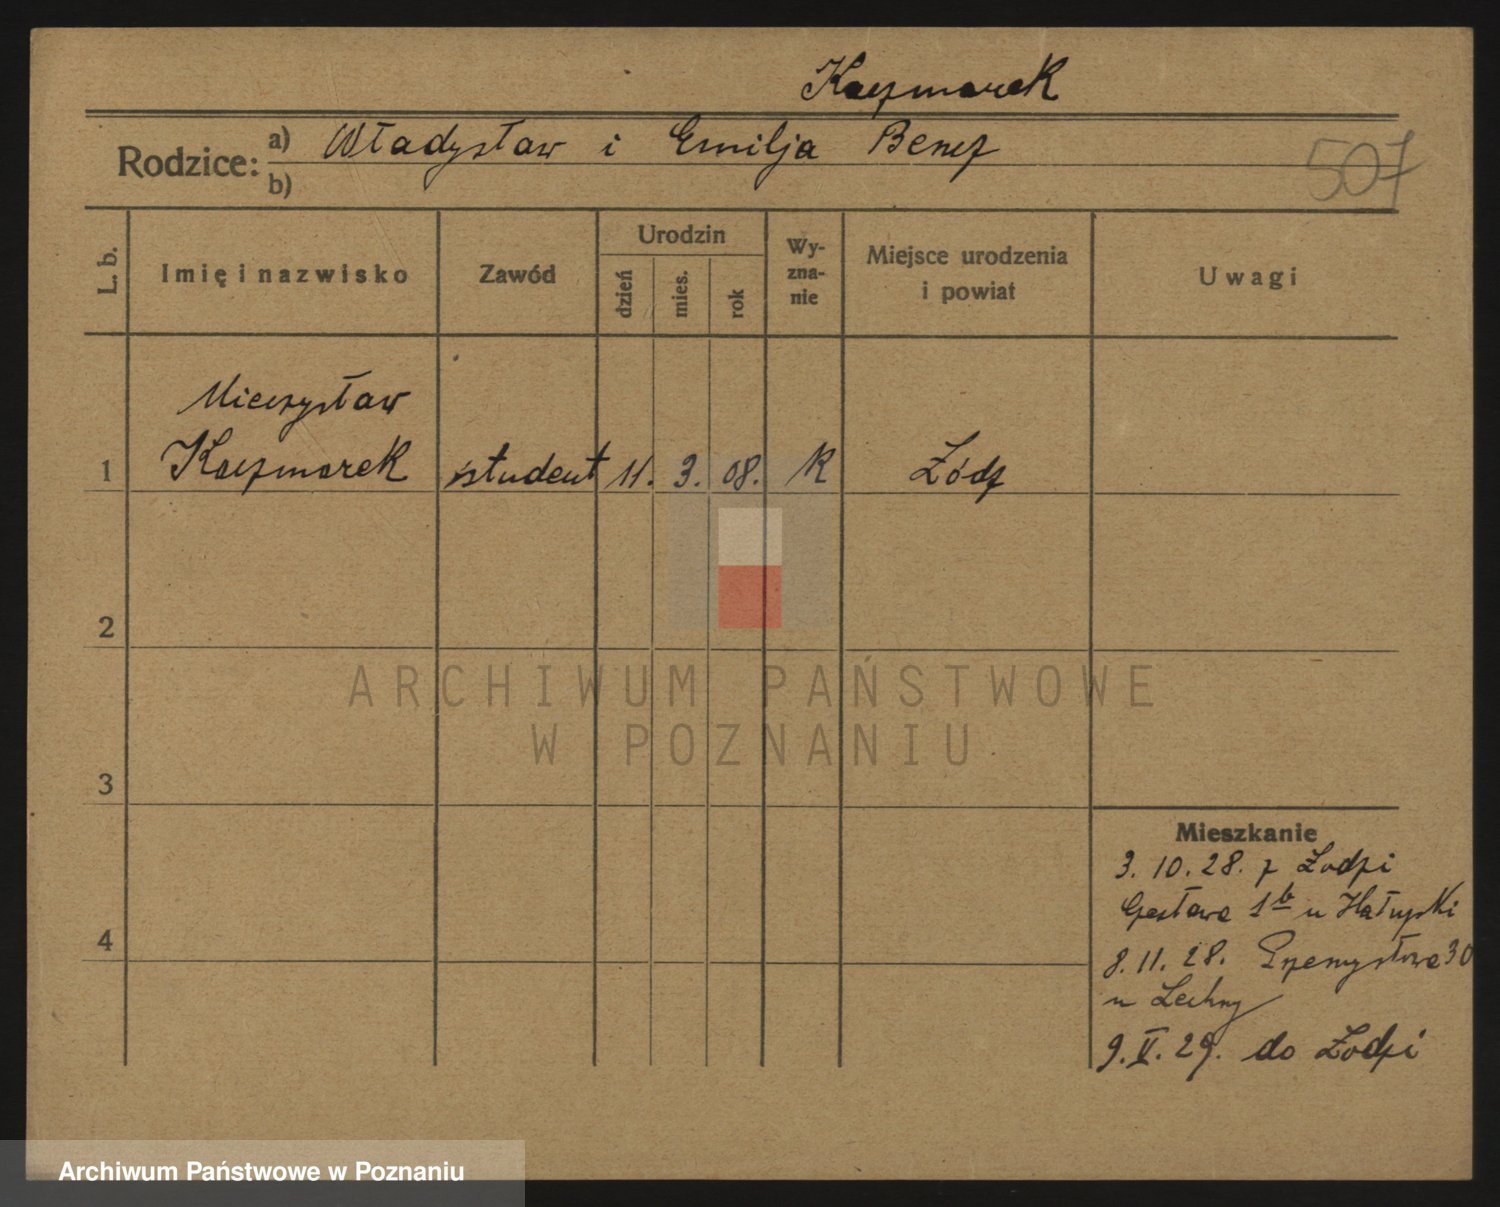 Kaczmarek
Rodzice: a) Władysław i Emilja Bencz
b)
507
L. b. Imię i nazwisko Zawód Urodzin dzień mies. rok Wyzna-nie Miejsce urodzenia i powiat Uwagi
Mieczysław
1 Kaczmarek student 11. 3. 08. K Łódź
2
ARCHIWUM PAŃSTWOWE
W POZNANIU
3
Mieszkanie
3. 10. 28. z Łodzi
1 b u
4
8. 11. 28. Przemysłowa 30
u
9. V. 29. do Łodzi
Archiwum Państwowe w Poznaniu